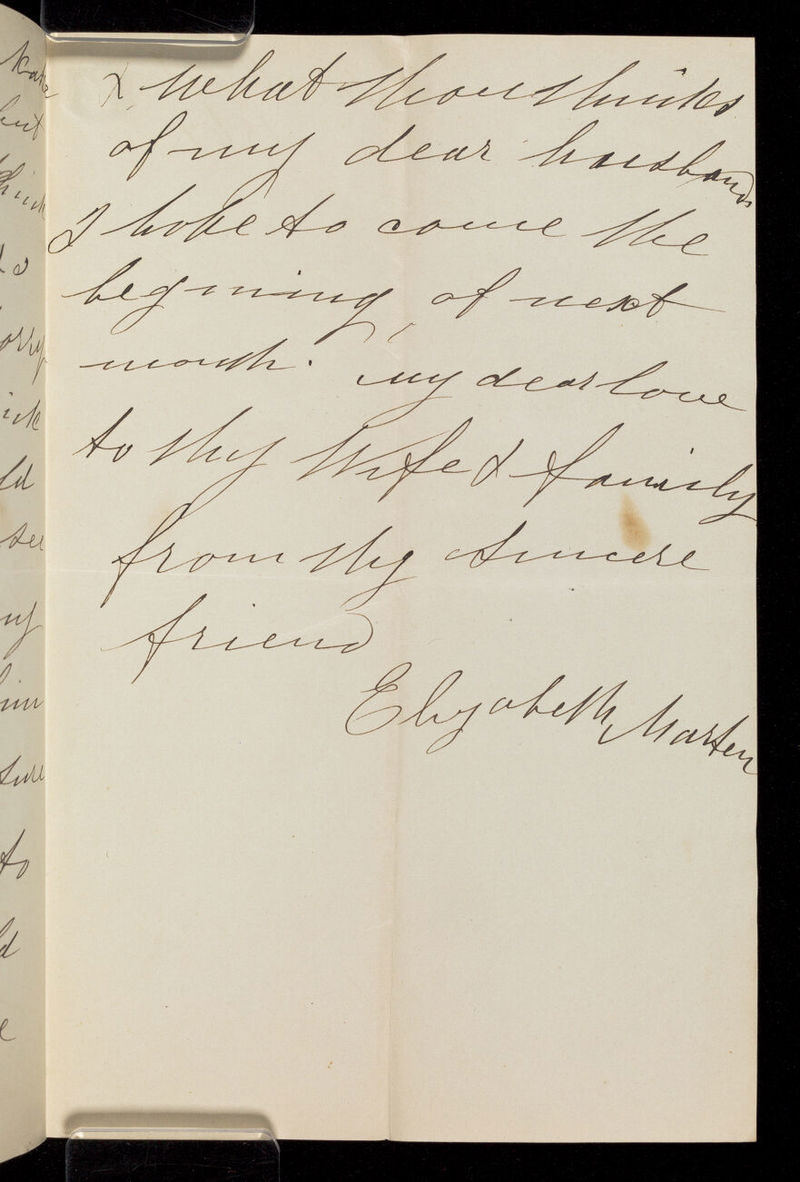 & What thou thinks
of my dear husband
I hope to come the
begining of next
month. my dear love
to thy Wife & family
from thy sincere
friend
Elizabeth Marten